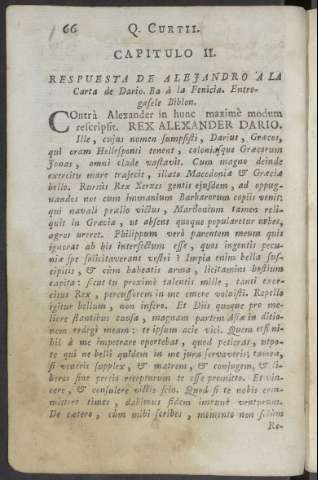 66 Q. CURTII.
CAPITULO II.
RESPUESTA DE ALEJANDRO A LA
Carta de Dario. Ba à la Fenicia. Entre-
gasele Biblon.
COntrà Alexander in hunc maximè modum
rescripsit. REX ALEXANDER DARIO.
Ille, cujus nomen sumpsisti, Darius, Græcos,
qui oram Hellesponti tenent, coloniasque Græcorum
Jonas, omni clade vastavit. Cum magno deinde
exercitu mare trajecit, illato Macedoniæ & Græciæ
bello. Rursùs Rex Xerxes gentis ejusdem, ad oppug-
nandos nos cum immanium Barbarorum copiis venit:
qui navali prælio victus, Mardonium tamen reli-
quit in Græcia, ut absens quoque popularetur urbes,
agros ureret. Philippum verò parentem meum quis
ignorat ab his interfectum esse, quos ingentis pecu-
niæ spe sollicitaverant vestri? Impia enim bella sus-
cipitis, & cùm habeatis arma, licitamini hostium
capita: sicut tu proximè talentis mille, tanti exer-
citus Rex, percussorem in me emere voluisti. Repello
igitur bellum, non infero. Et Diis quoque pro me-
liore stantibus causa, magnam partem Asiæ in ditio-
nem redegi meam: te ipsum acie vici. Quem etsi ni-
hil à me impetrare oportebat, quod petieras, utpo-
te qui ne belli quidem in me jura servaveris; tamen,
si veneris supplex, & matrem, & conjugem, & li-
beros sine pretio recepturum te esse promitto. Et vin-
cere, & consulere victis scio. Quod si te nobis com-
mittere times, dabimus fidem impunè venturum.
De cætero, cùm mihi scribes, memento non solùm
Re-